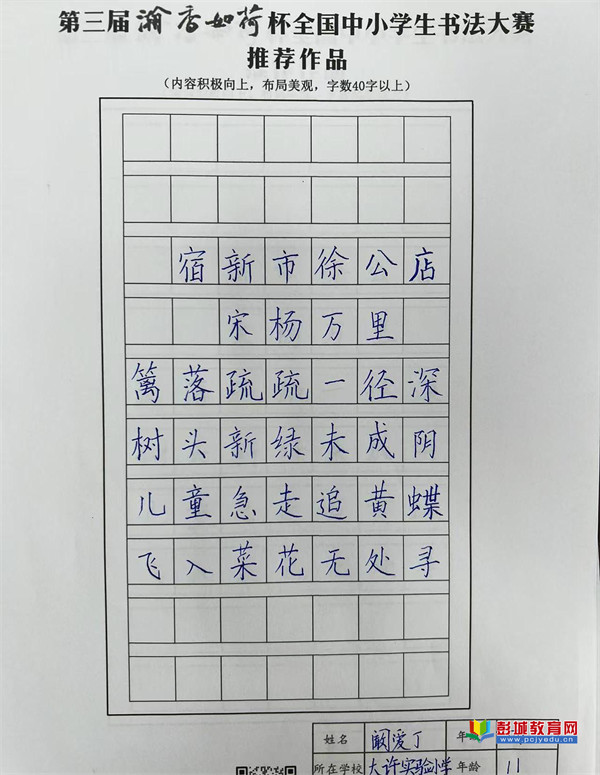 第三届瀚香如荷杯全国中小学生书法大赛
推荐作品
(内容积极向上,布局美观,字数40字以上)
宿新市徐公店
宋杨万里
篱落疏疏一径深
树头新绿未成阴
儿童急走追黄蝶
飞入菜花无处寻
姓名 阚爱丁 年
所在学校 大许实验小学 年龄 11
彭城教育网
www.pcjyedu.cn